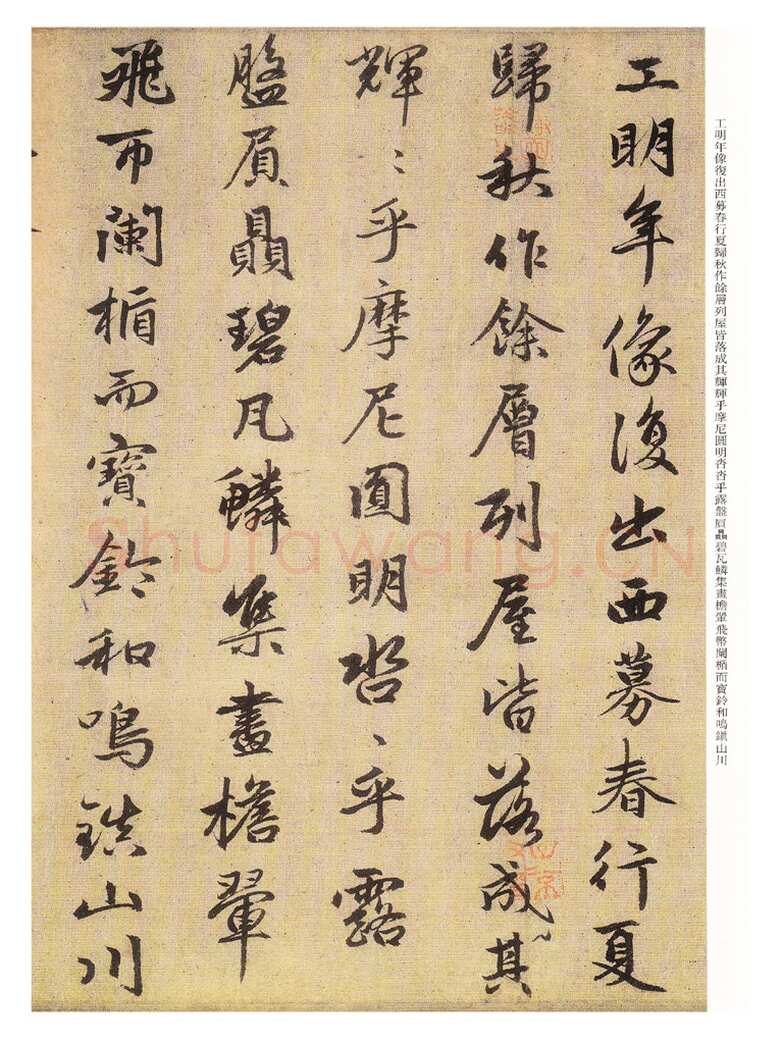 工明年像復出西募春行夏
歸秋作餘層列屋皆落成其
輝〻乎摩尼圓明沓〻乎露
盤屓贔碧瓦鱗集畫檐翬
飛帀闌楯而寶鈴和鳴鎮山川
工明年像復出西募春行夏歸秋作餘層列屋皆落成其輝輝乎摩尼圓明沓沓乎露盤屓贔碧瓦鱗集畫檐翬飛幣闌楯而寶鈴和鳴鎮山川
Shufawang.CN